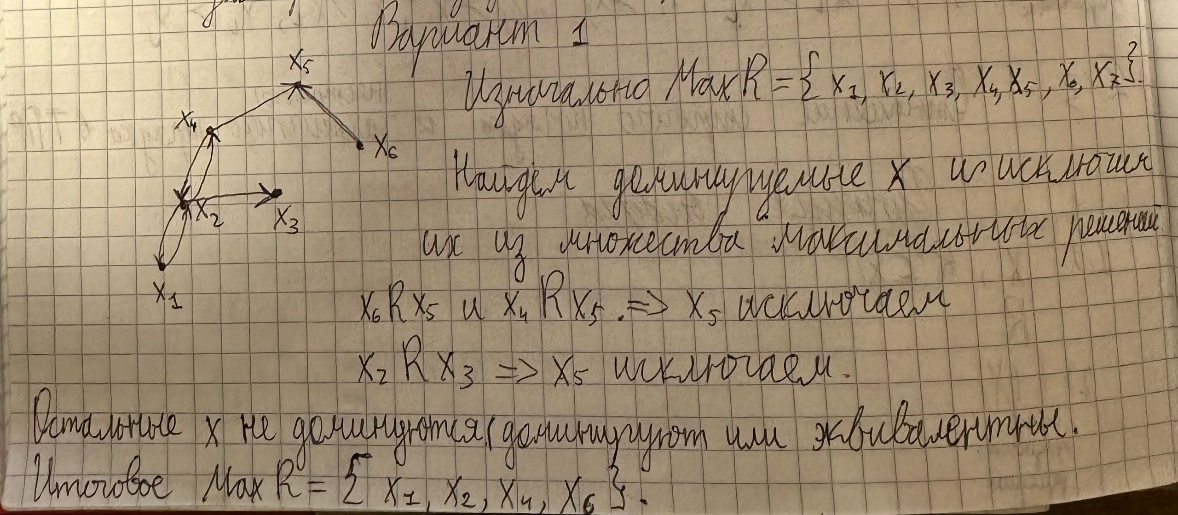 Вариант 1
Изначально Max R = { x₁, x₂, x₃, x₄, x₅, x₆, x₇}.
x₅
x₄
x₆
x₂
x₃
x₁
Найдём доминируемые x и исключим
их из множества максимальных решений.
x₆ R x₅ и x₄ R x₅. => x₅ исключаем
x₂ R x₃ => x₅ исключаем.
Остальные x не доминуются(доминируют или эквивалентны.
Итоговое Max R = { x₁, x₂, x₄, x₆ }.